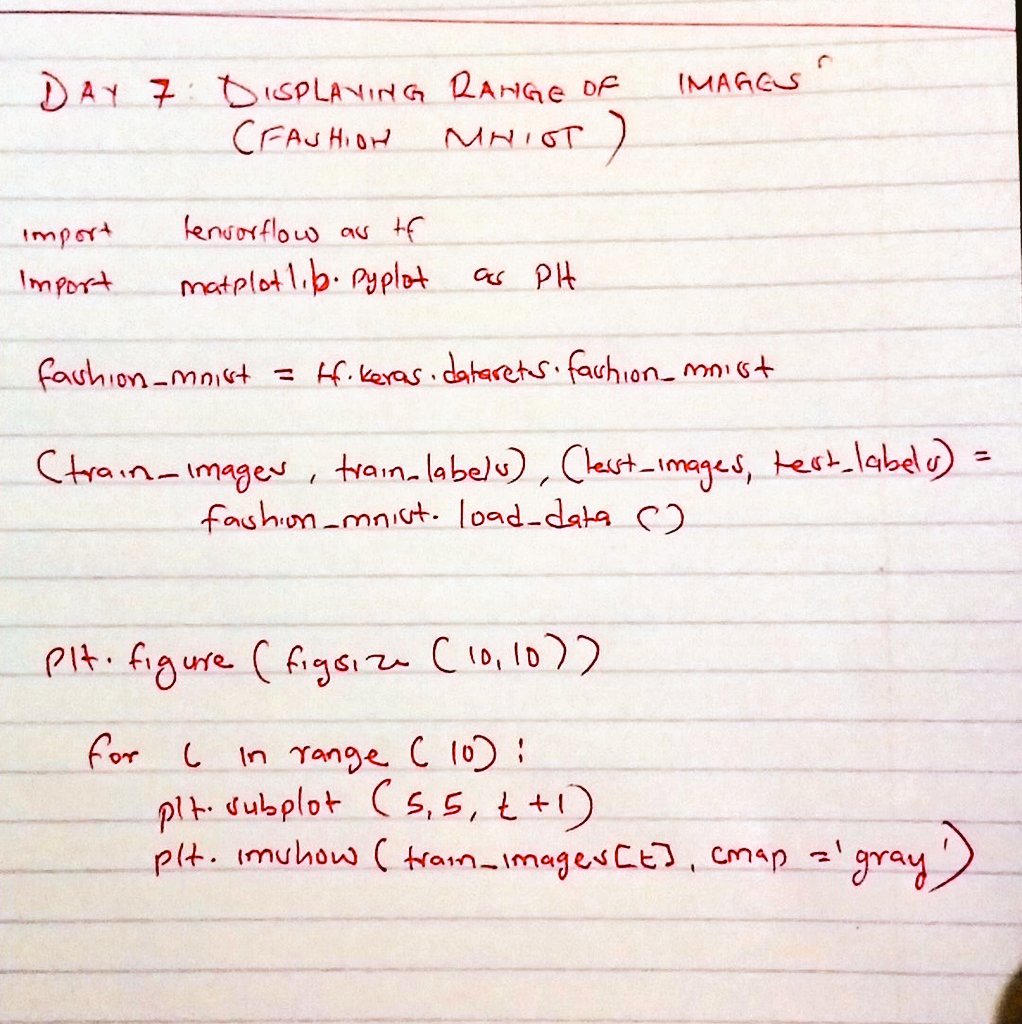 DAY 7: DISPLAYING RANGE OF IMAGES
(FASHION MNIST)
import tensorflow as tf
Import matplotlib.pyplot as plt
fashion_mnist = tf.keras.datasets.fashion_mnist
(train_images, train_labels), (test_images, test_labels) =
fashion_mnist.load_data ()
plt.figure (figsize (10,10))
for i in range (10):
plt.subplot (5,5, t+1)
plt.imshow (train_images[t], cmap ='gray')